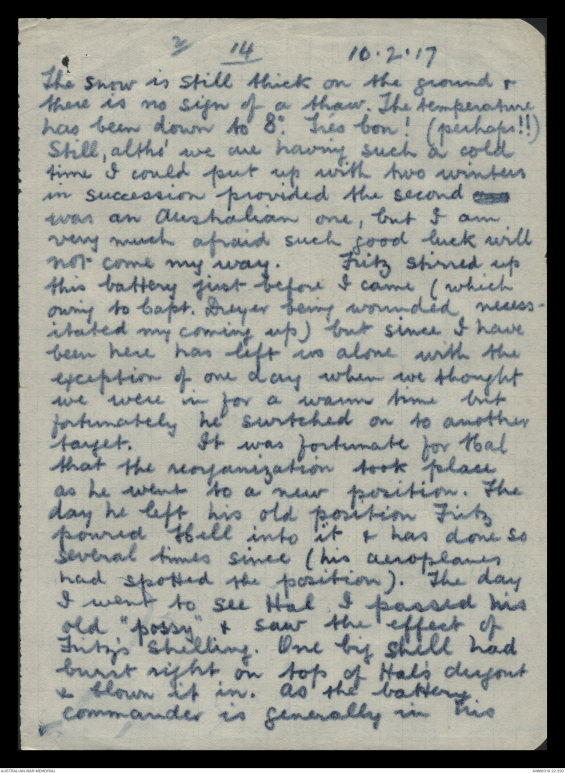 2/ 14 10.2.17
The snow is still thick on the ground &
there is no sign of a thaw. The temperature
has been down to 8°. Trés bon! (perhaps!!)
Still, altho' we are having such a cold
time I could put up with two winters
in succession provided the second
was an Australian one, but I am
very much afraid such good luck will
not come my way. Fritz stirred up
this battery just before I came (which
owing to Capt. Dreyer being wounded, necess-
itated my coming up) but since I have
been here has left us alone with the
exception of one day when we thought
we were in for a warm time but
fortunately he switched on to another
target. It was fortunate for Hal
that the reorganization took place
as he went to a new position. The
day he left his old position Fritz
poured Hell into it & has done so
several times since (his aeroplanes
had spotted the position). The day
I went to see Hal I passed his
old "possy" & saw the effect of
Fritz's shelling. One big shell had
burst right on top of Hal's dugout
& blown it in. As the battery
commander is generally in his
AUSTRALIAN WAR MEMORIAL